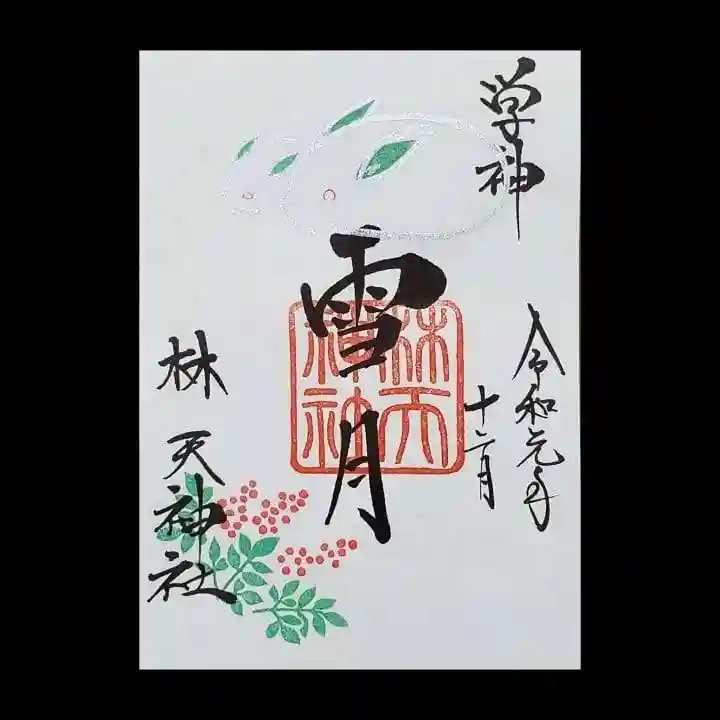 学神
令和元年
十二月
雪月
林天神社
林天神社